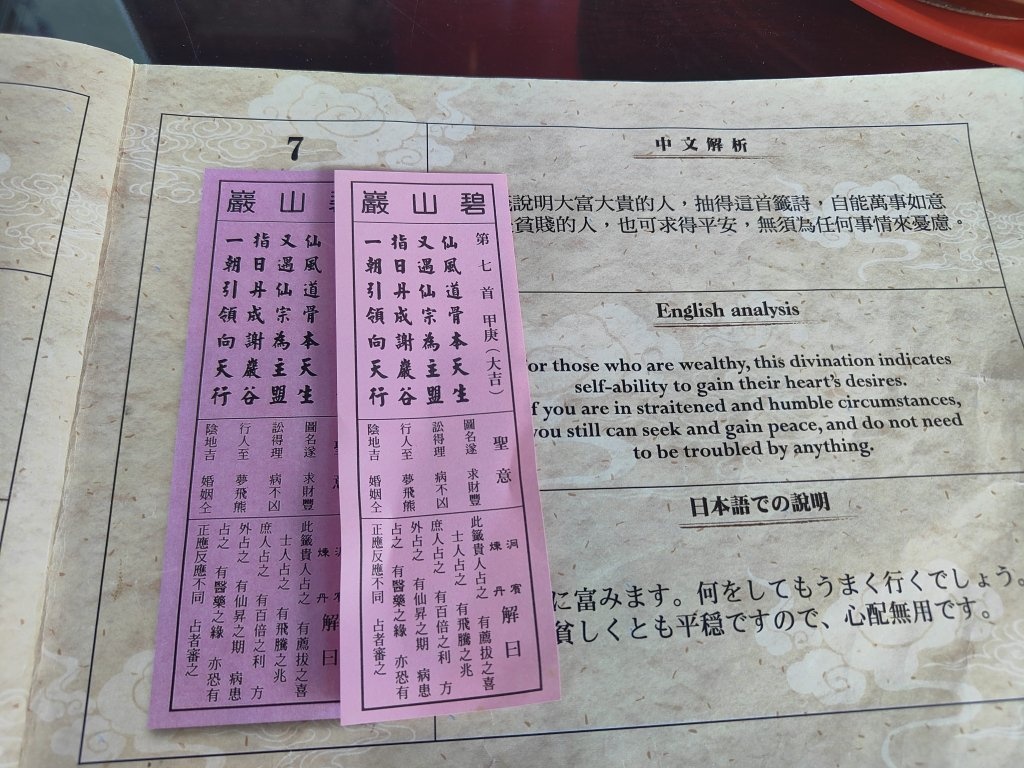 7
山巖
仙風道骨本天生
又遇仙宗為主盟
指日丹成謝巖谷
一朝引領向天行
圖名遂 求財豐
訟得理 病不凶
行人至 夢飛熊
陰地吉 婚姻仝
煉丹
解曰
此籤貴人占之 有薦拔之喜
士人占之 有飛騰之兆
庶人占之 有百倍之利 方
外占之 有仙昇之期 病患
占之 有醫藥之緣 亦恐有
正應反應不同 占者審之
碧山巖
第七首 甲庚(大吉)
仙風道骨本天生
又遇仙宗為主盟
指日丹成謝巖谷
一朝引領向天行
聖意
圖名遂 求財豐
訟得理 病不凶
行人至 夢飛熊
陰地吉 婚姻仝
洞賓
煉丹
解曰
此籤貴人占之 有薦拔之喜
士人占之 有飛騰之兆
庶人占之 有百倍之利 方
外占之 有仙昇之期 病患
占之 有醫藥之緣 亦恐有
正應反應不同 占者審之
中文解析
說明大富大貴的人，抽得這首籤詩，自能萬事如意
貧賤的人，也可求得平安，無須為任何事情來憂慮。
English analysis
or those who are wealthy, this divination indicates
self-ability to gain their heart's desires.
f you are in straitened and humble circumstances,
you still can seek and gain peace, and do not need
to be troubled by anything.
日本語での說明
に富みます。何をしてもうまく行くでしょう。
貧しくとも平穏ですので、心配無用です。